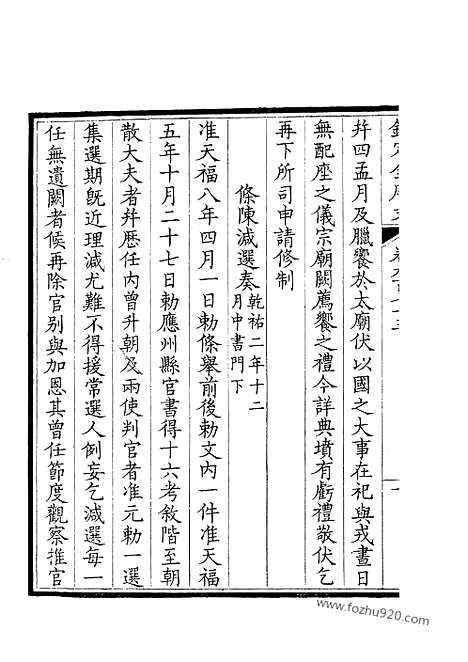 幷四孟月及臘饗於太廟伏以國之大事在祀與戎晝日
無配座之儀宗廟闕薦饗之禮今詳典墳有虧禮敬伏乞
再下所司申請修制
條陳減選奏乾祐二年十二
月中書門下
准天福八年四月一日勅條舉前後勅文內一件准天福
五年十月二十七日勅應州縣官書得十六考敘階至朝
散大夫者幷歷任內曾升朝及兩使判官者准元勅一選
集選期旣近理減尤難不得援常選人例妄乞減選每一
任無遺闕者候再除官別與加恩其曾任節度觀察推官
www.fozhu920.com